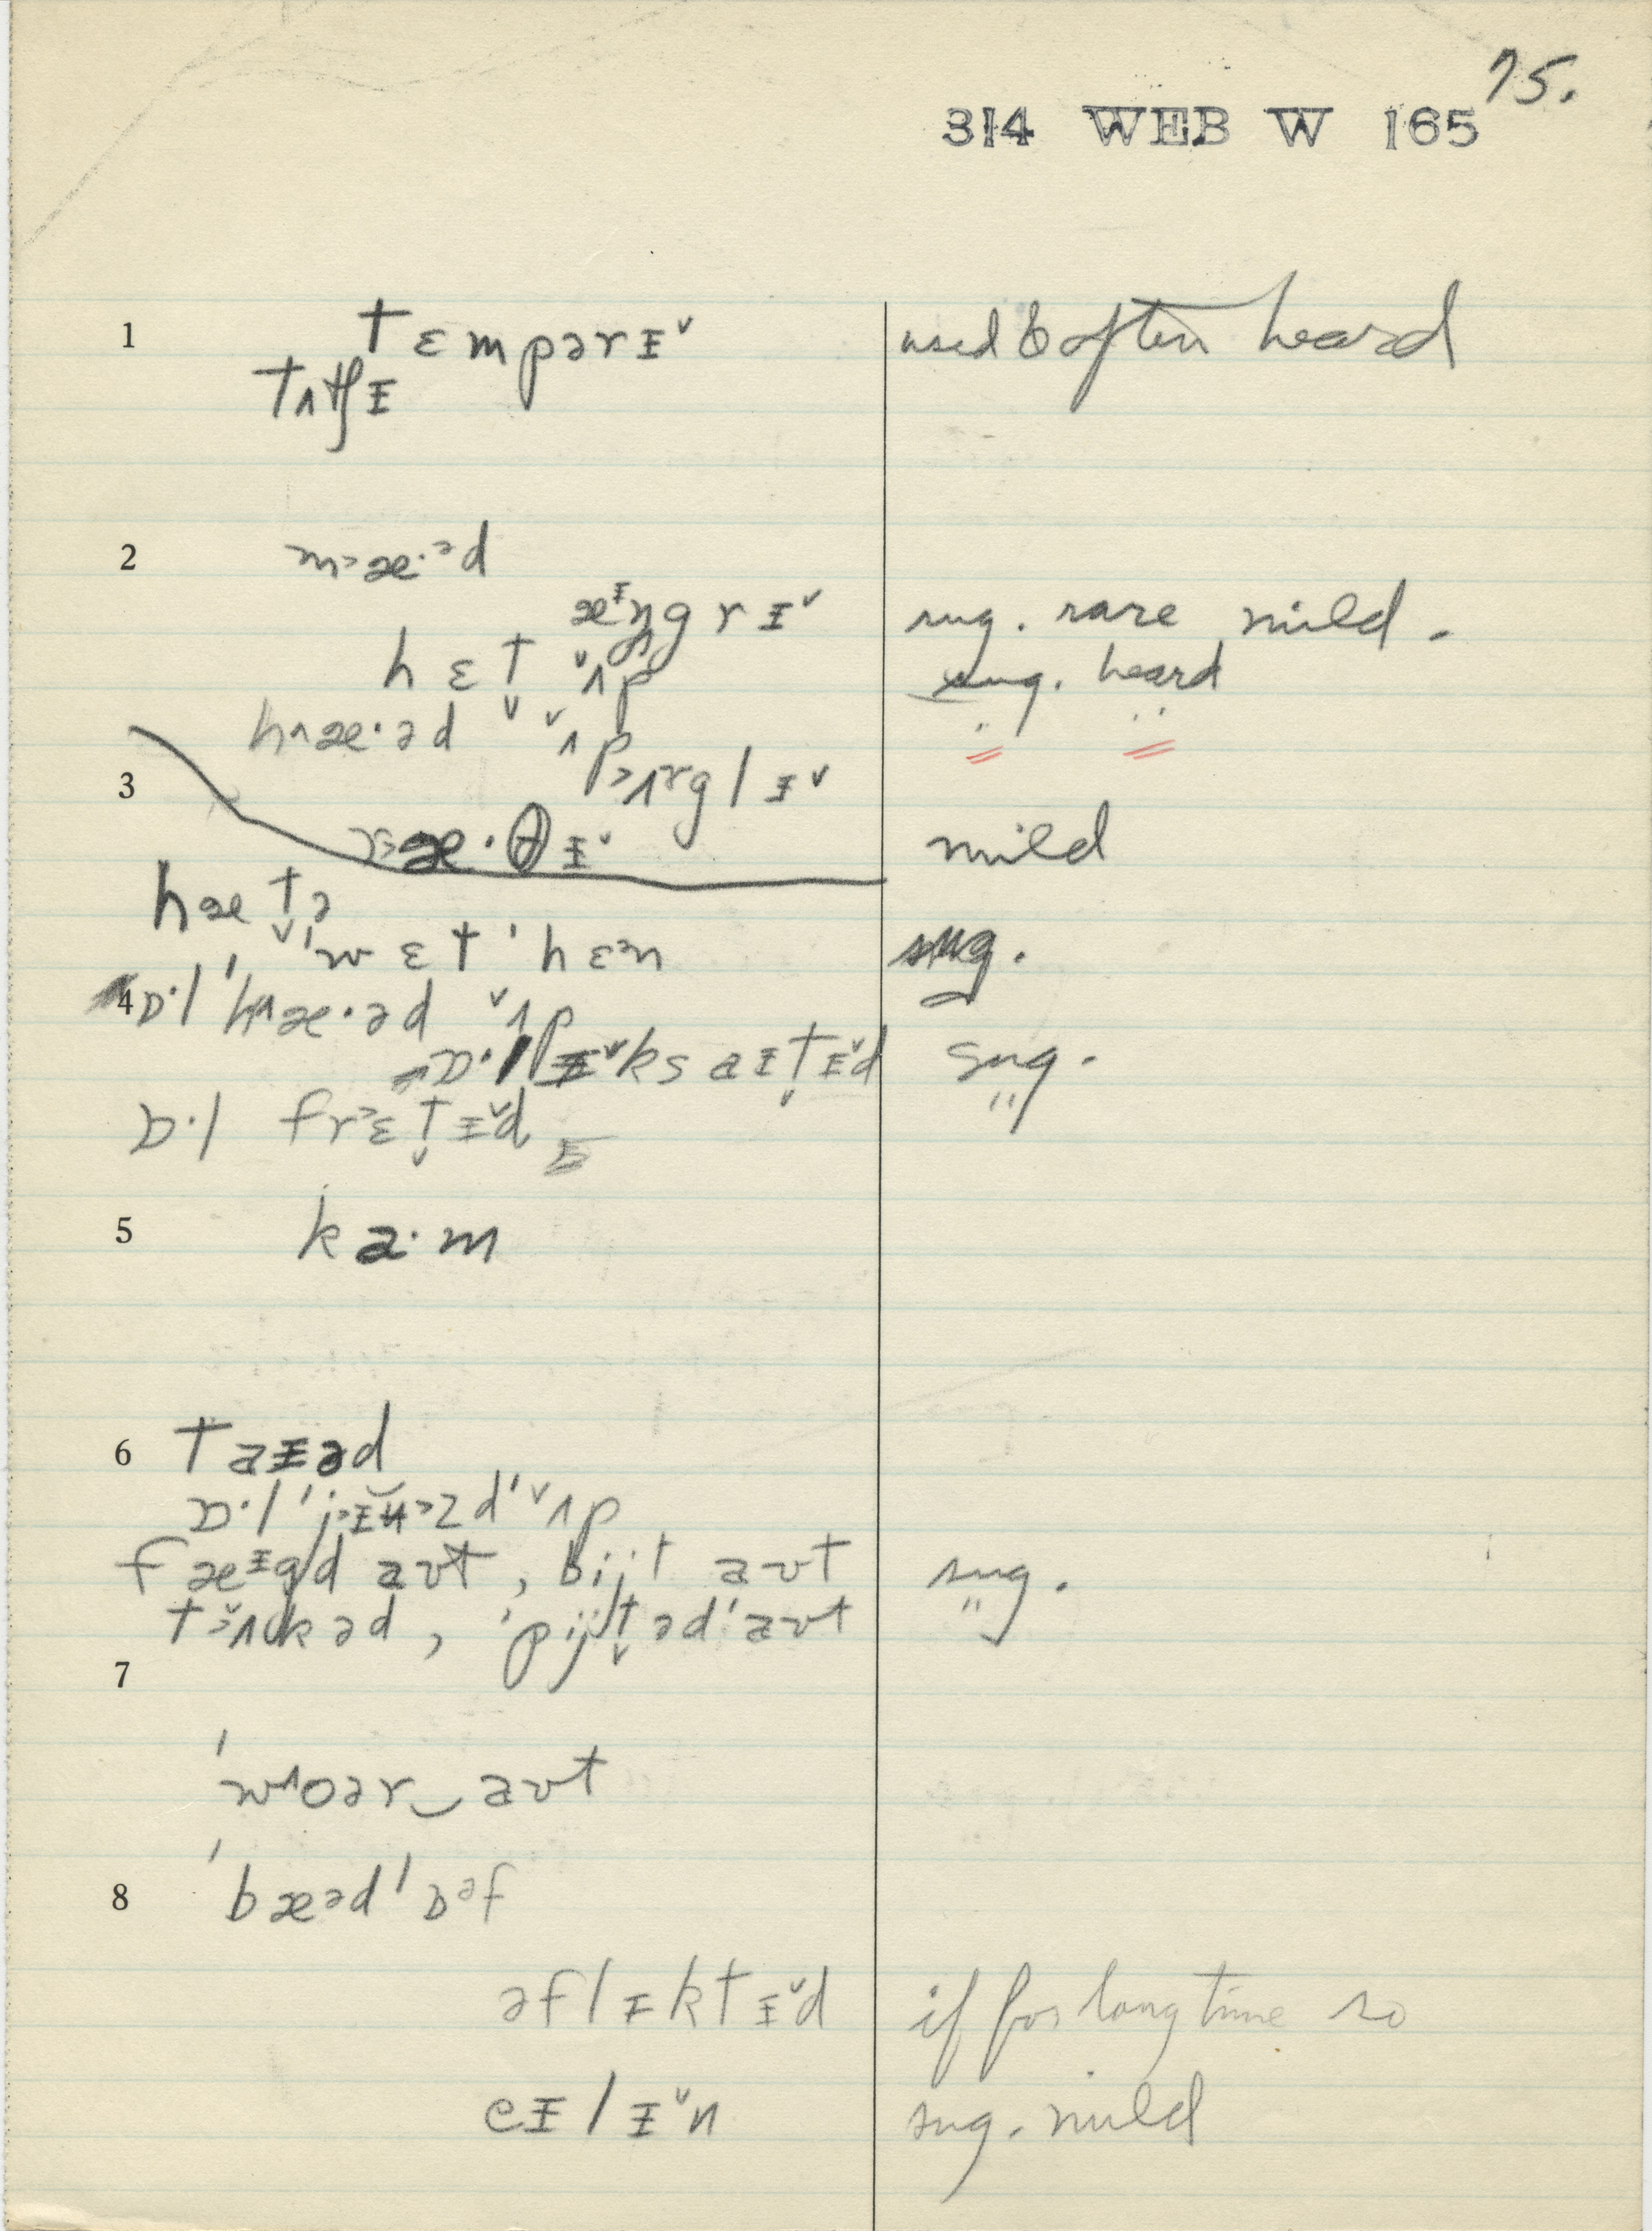 75.
314 WEB W 165
1 tɛmpərɪ˅ used & often heard
tʌtʃɪ
2 m>æ·ᵊd
æᶦŋgrɪ˅ sug. rare mild.
hɛt̬ ˅ʌp sug. heard
h^æ·əd ˅ʌp
3
rɪ˅ mild
hæt̬ə
'wɛt 'hɛᵊn sug.
4 ɒ·l 'h^æ·əd ˅ʌp
ɒ·l ɪ˅ksaɪt̬ɪ˅d sug.
ɒ·l fr>ɛt̬ɪ˅d
5 ka·m
6 taɪəd
ɒ·l ˅ʌp
fæᶦgd aʊt, bijt aʊt sug.
kəd, 'pijt̬əd'aʊt
7
'w^oər‿aʊt
8 'bæᵊd'ɒᵊf
əflɪktɪ˅d if for long time so
eɪlɪ˅n sug. mild